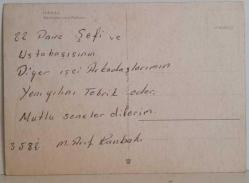 22 Daire Şefi ve
Ustabaşısının
Diğer işçi Arkadaşlarımın
Yeniyılını Tebrik eder.
Mutlu seneler dilerim.
358 M. Arif